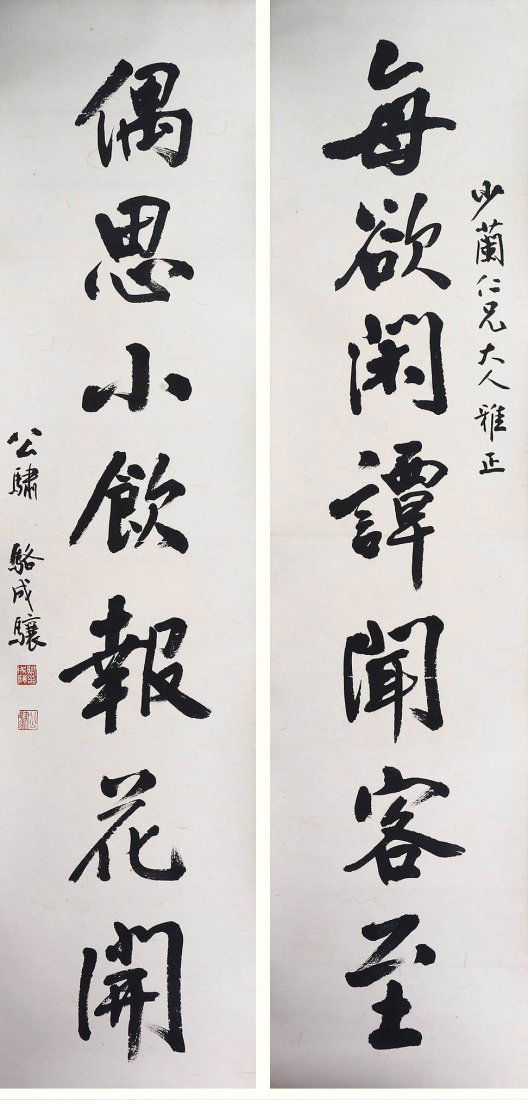 每欲閑譚聞客至
少蘭仁兄大人雅正
偶思小飲報花開
公驌 駱成驤